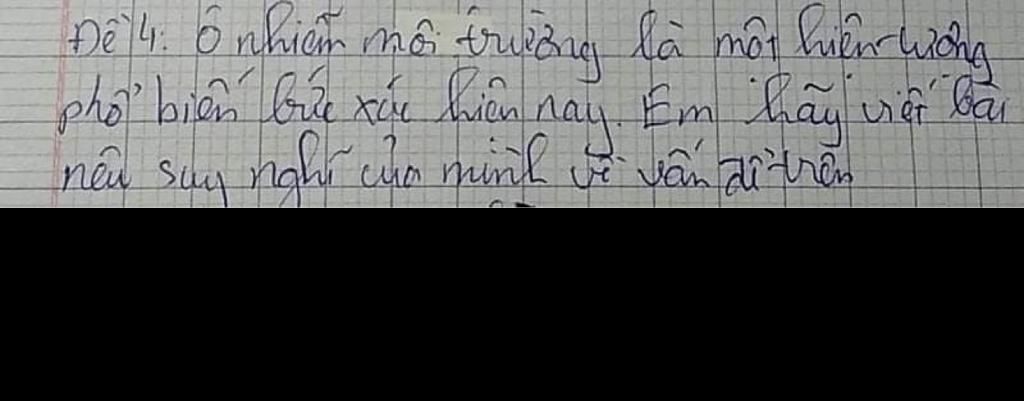 Đề 4: Ô nhiễm môi trường là một hiện tượng
phổ biến bức xúc hiện nay. Em hãy viết bài
nêu suy nghĩ của mình về vấn đề trên